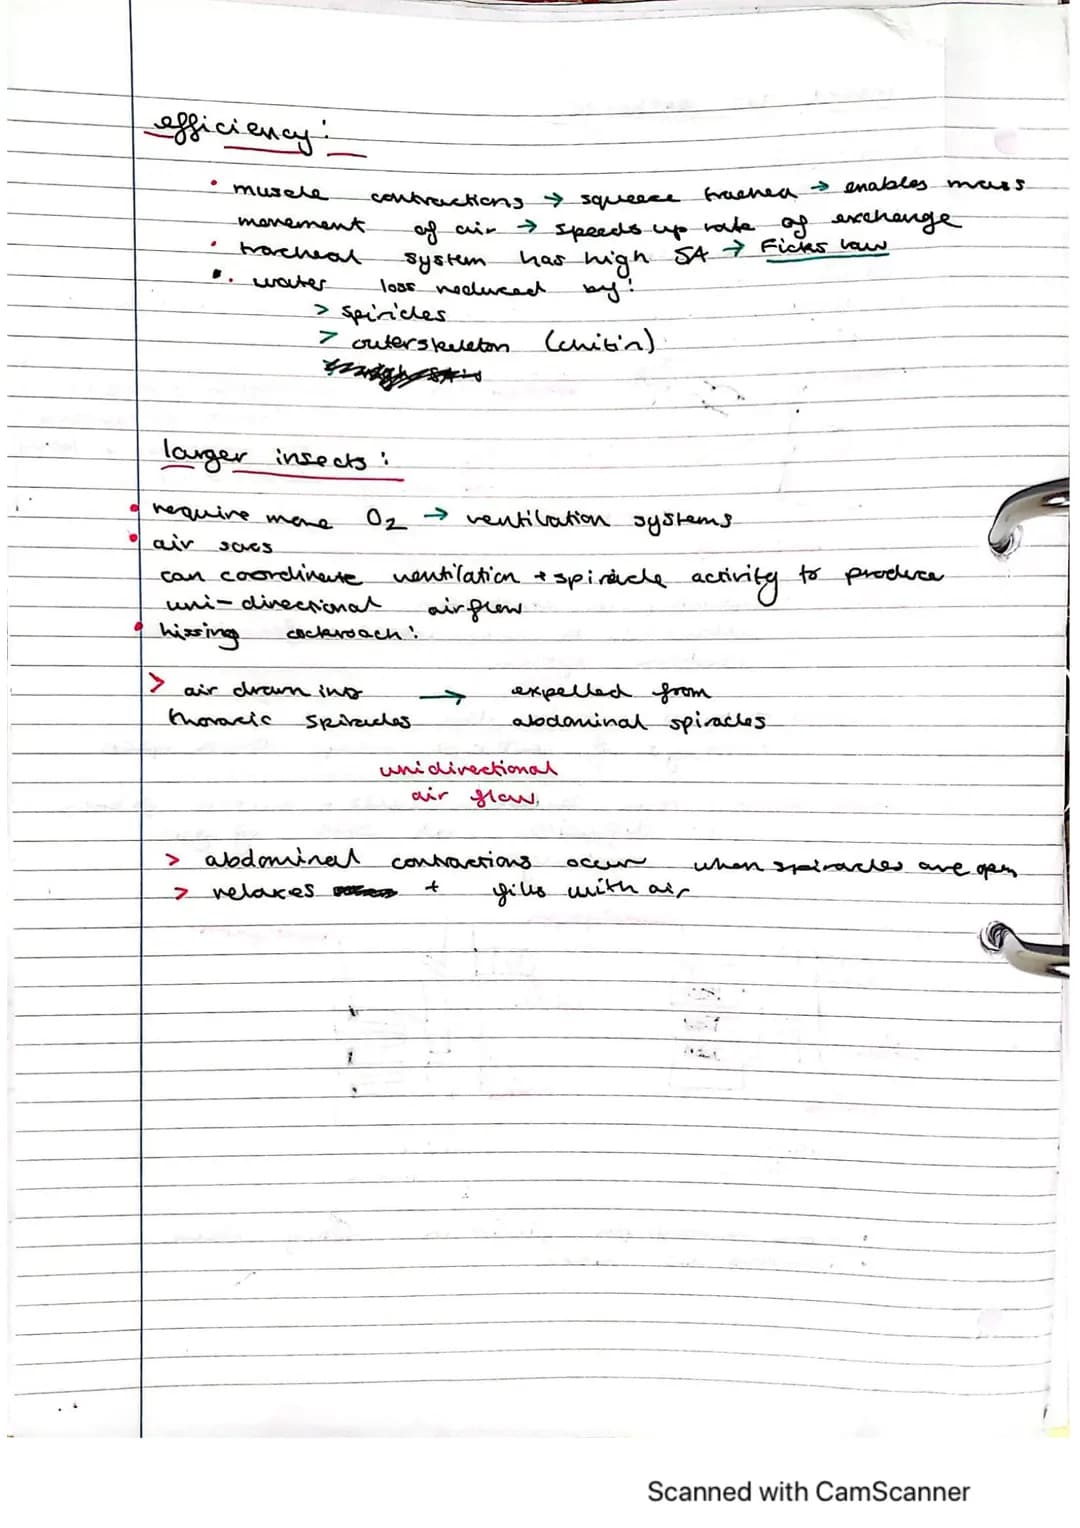 efficiency:
• muscle contractions → squeeze trachea → enables mass
movement of air → speeds up rate of exchange
• tracheal system has high SA → Ficks law
• water loss reduced by:
> spiricles
> outerskeleton (chitin)
larger insects:
• require more O₂ → ventilation systems
• air sacs
can coordinate ventilation + spiracle activity to produce
uni-directional airflow
• hissing cockroach:
> air drawn into → expelled from
thoracic spiracles abdominal spiracles
unidirectional
air flow
> abdominal contractions occur when spiracles are open
> relaxes + fills with air
Scanned with CamScanner